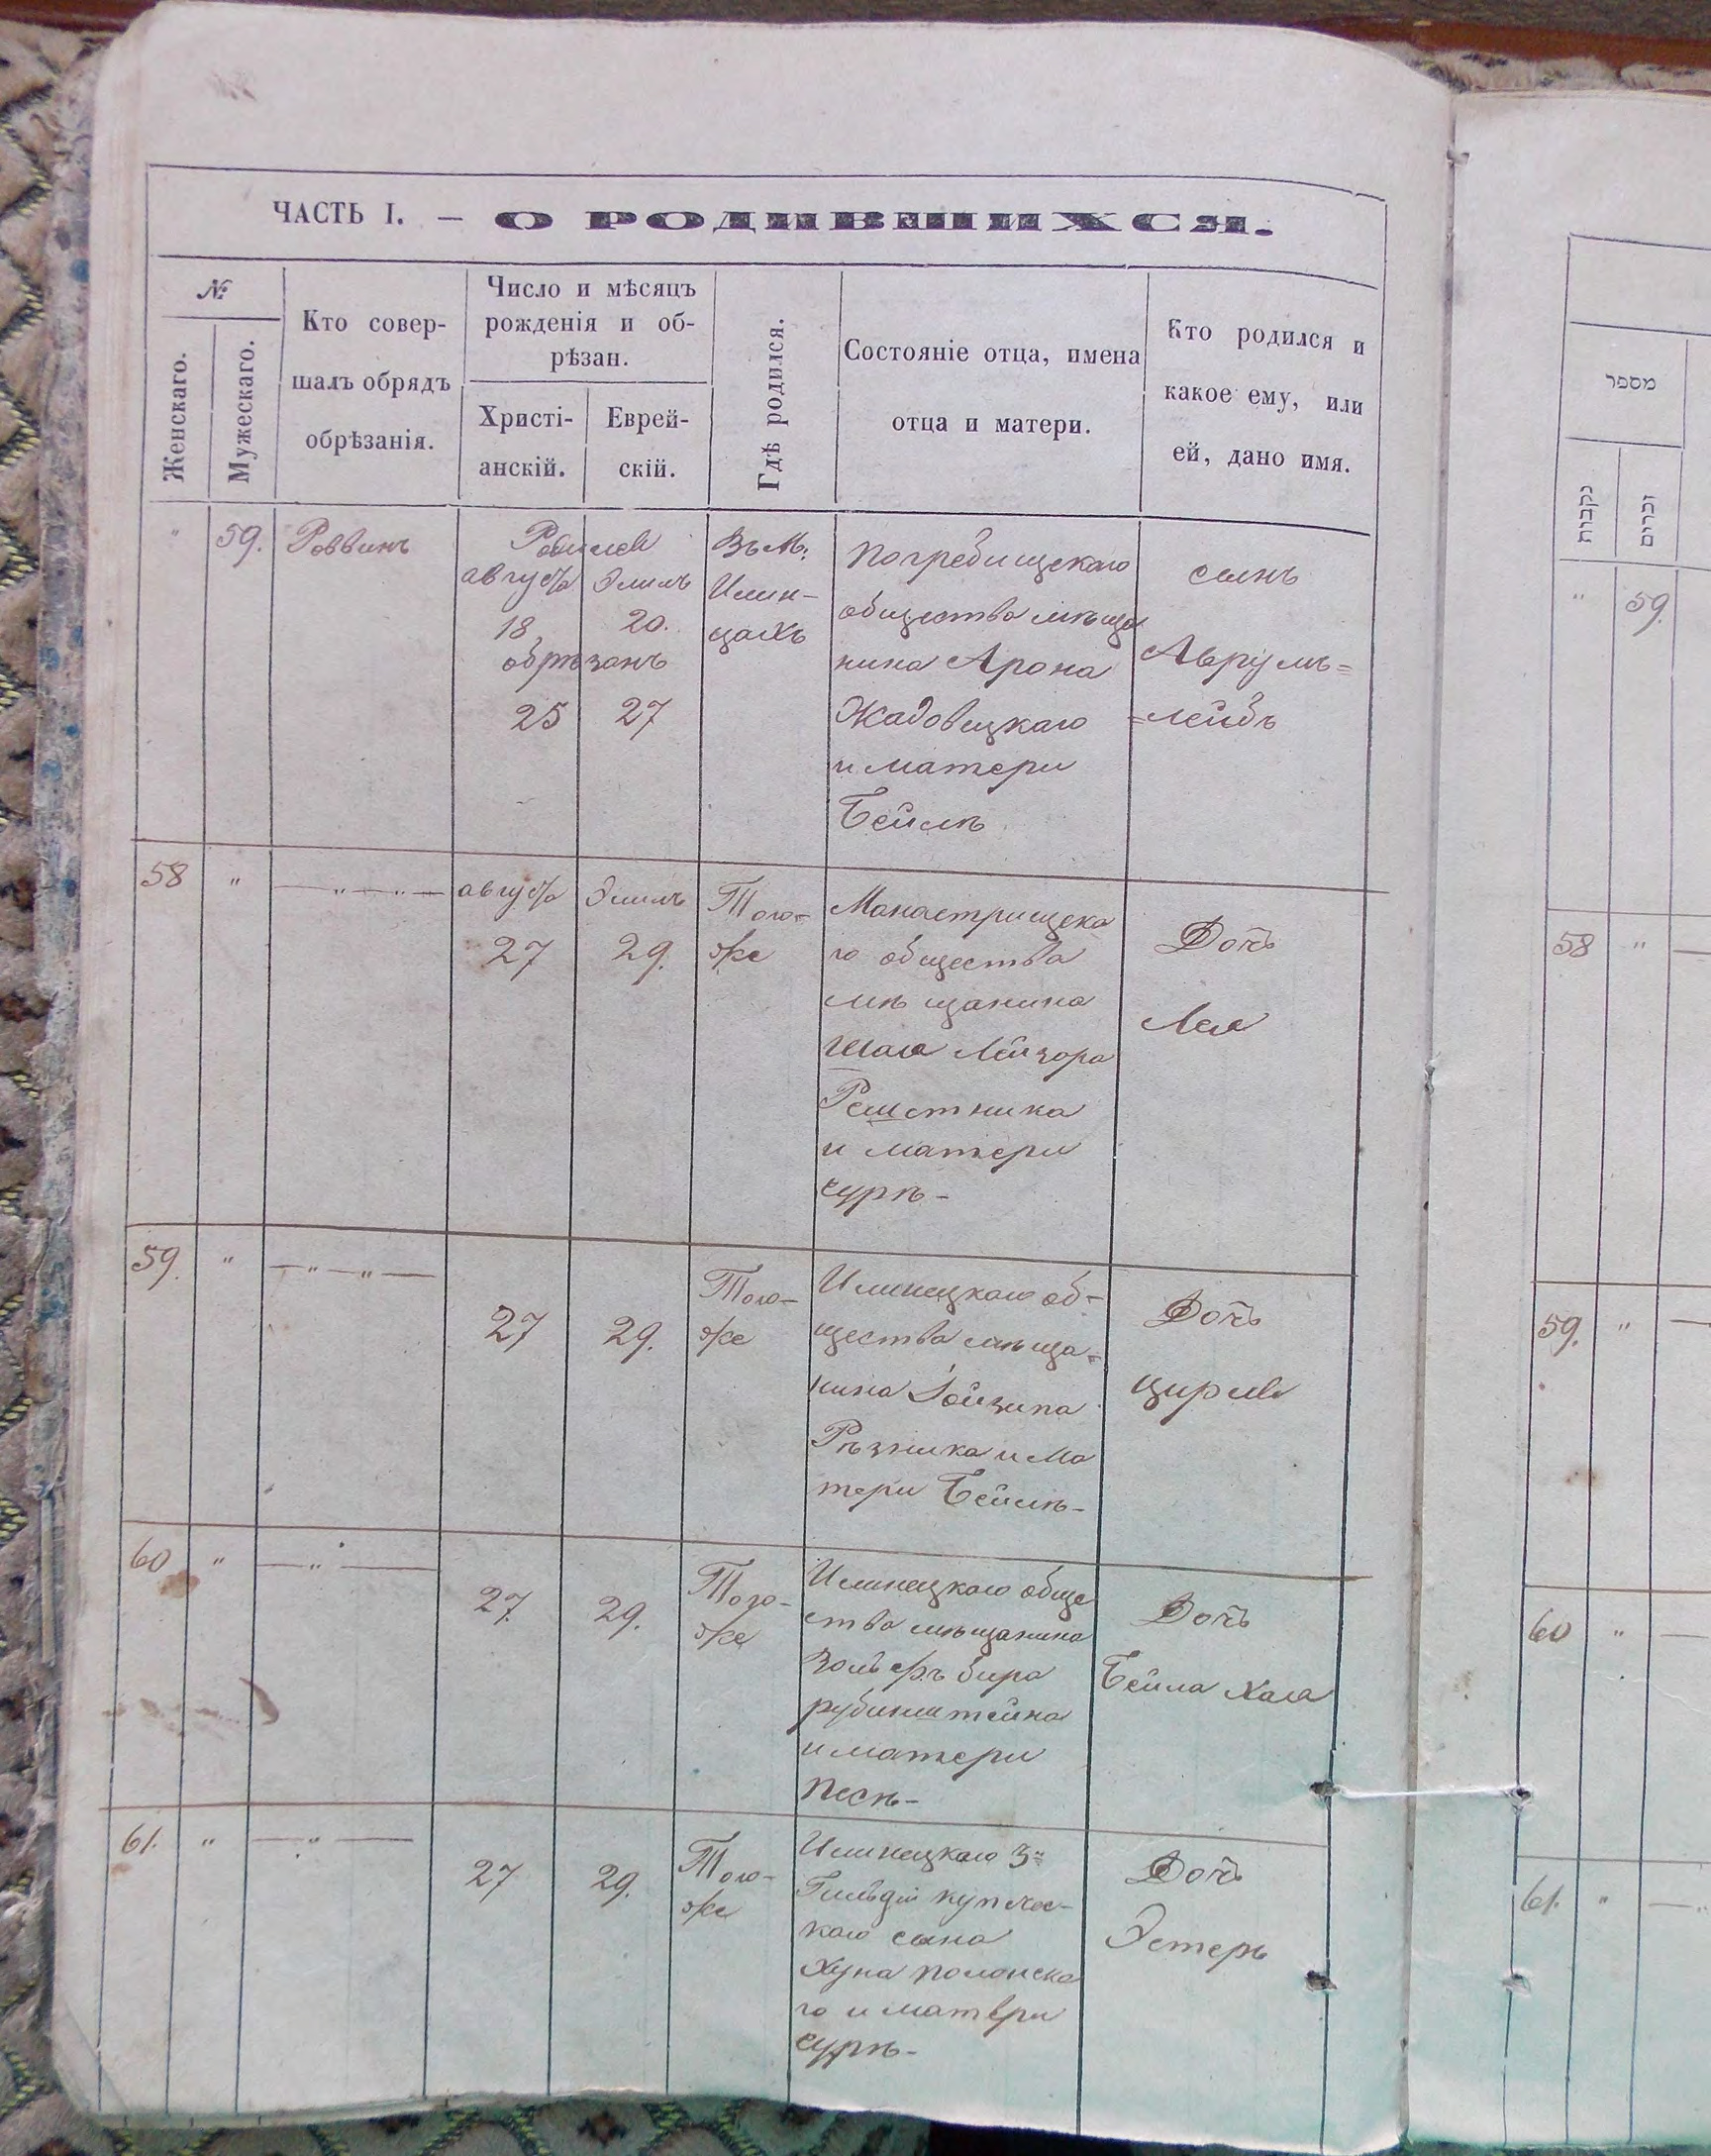 ЧАСТЬ I. — О РОДИВШИХСЯ.
№
Женскаго.
Мужескаго.
Кто совер-
шалъ обрядъ
обрѣзанія.
Число и мѣсяцъ
рожденія и об-
рѣзан.
Христі-
анскій.
Еврей-
скій.
Гдѣ родился.
Состояніе отца, имена
отца и матери.
Кто родился и
какое ему, или
ей, дано имя.
" 59. Раввинъ
Родился
август Элилъ
18 20.
обрѣзанъ
25 27
Въ М:
Илин-
цахъ
Погребищскаго
общества мѣща
нина Арона
Жадовецкаго
и матери
Бейлѣ
сынъ
Аврумъ=
=лейбъ
58 " — " — " —
август Элилъ
27 29.
Того-
же
Манастрищска
го общества
мѣщанина
Шаи Лейзора
Решетника
и матери
Сурѣ-
Дочь
Лея
59. " — " — " —
27 29.
Того-
же
Илинецкаго об-
щества мѣща-
нина
Рѣзника и ма
тери Бейлѣ-
Дочь
Цирля
60 " — " —
27 29.
Того-
же
Илинецкаго обще
ства мѣщанина
рубинштейна
и матери
Песѣ-
Дочь
Бейла Хая
61. " — " —
27 29.
Того-
же
Илинецкаго 3й
Гильдіи купечес-
каго сына
Хуна Полонска
го и матери
Сурѣ-
Дочь
Эстеръ
מספר
נקבות
זכרים
" 59.
58 " —
59. " —
60 " —
61. " —